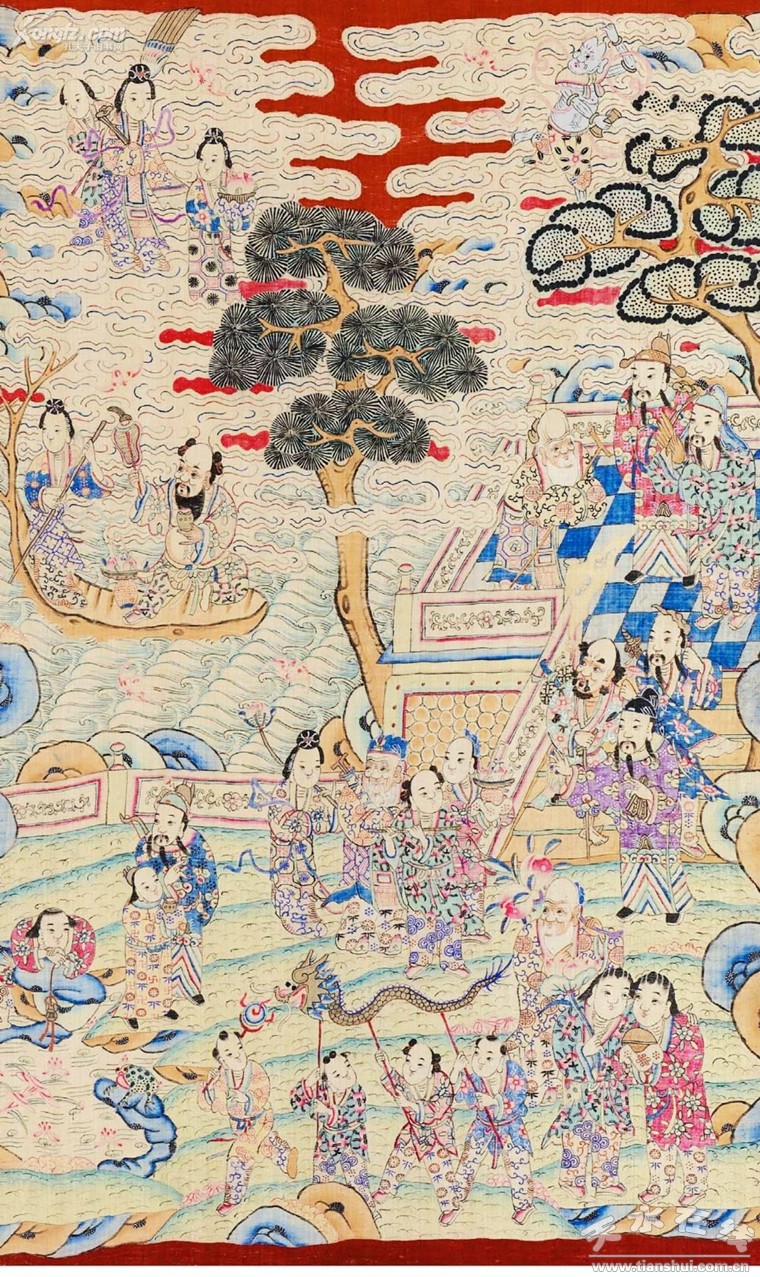 Kongfz.com
孔夫子旧书网
天水在线
www.tianshui.com.cn